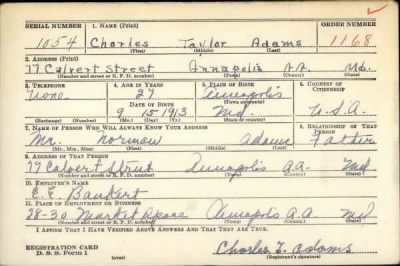 SERIAL NUMBER 1. NAME (Print) ORDER NUMBER
1054 Charles Taylor Adams 1168
(First) (Middle) (Last)
2. ADDRESS (Print)
77 Calvert Street Annapolis A.A. Md.
(Number and street or R. F. D. number) (Town) (County) (State)
3. TELEPHONE 4. AGE IN YEARS 5. PLACE OF BIRTH 6. COUNTRY OF CITIZENSHIP
None 27 Annapolis
DATE OF BIRTH (Town or county)
9 15 1913 Md U.S.A.
(Exchange) (Number) (Mo.) (Day) (Yr.) (State or country)
7. NAME OF PERSON WHO WILL ALWAYS KNOW YOUR ADDRESS 8. RELATIONSHIP OF THAT PERSON
Mr. Norman Adams Father
(Mr., Mrs., Miss) (First) (Middle) (Last)
9. ADDRESS OF THAT PERSON
77 Calvert Street Annapolis A.A. Md
(Number and street or R. F. D. number) (Town) (County) (State)
10. EMPLOYER'S NAME
E.E.
11. PLACE OF EMPLOYMENT OR BUSINESS
28-30 Market Space Annapolis A.A. Md
(Number and street or R. F. D. number) (Town) (County) (State)
I AFFIRM THAT I HAVE VERIFIED ABOVE ANSWERS AND THAT THEY ARE TRUE.
REGISTRATION CARD
D. S. S. Form 1 (over) Charles T. Adams
(Registrant's signature)